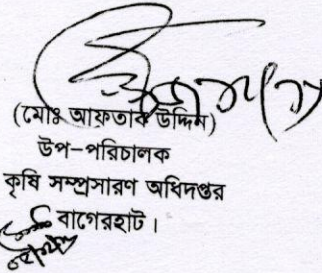 (মোঃ আফতাব উদ্দিন)
উপ-পরিচালক
কৃষি সম্প্রসারণ অধিদপ্তর
বাগেরহাট।